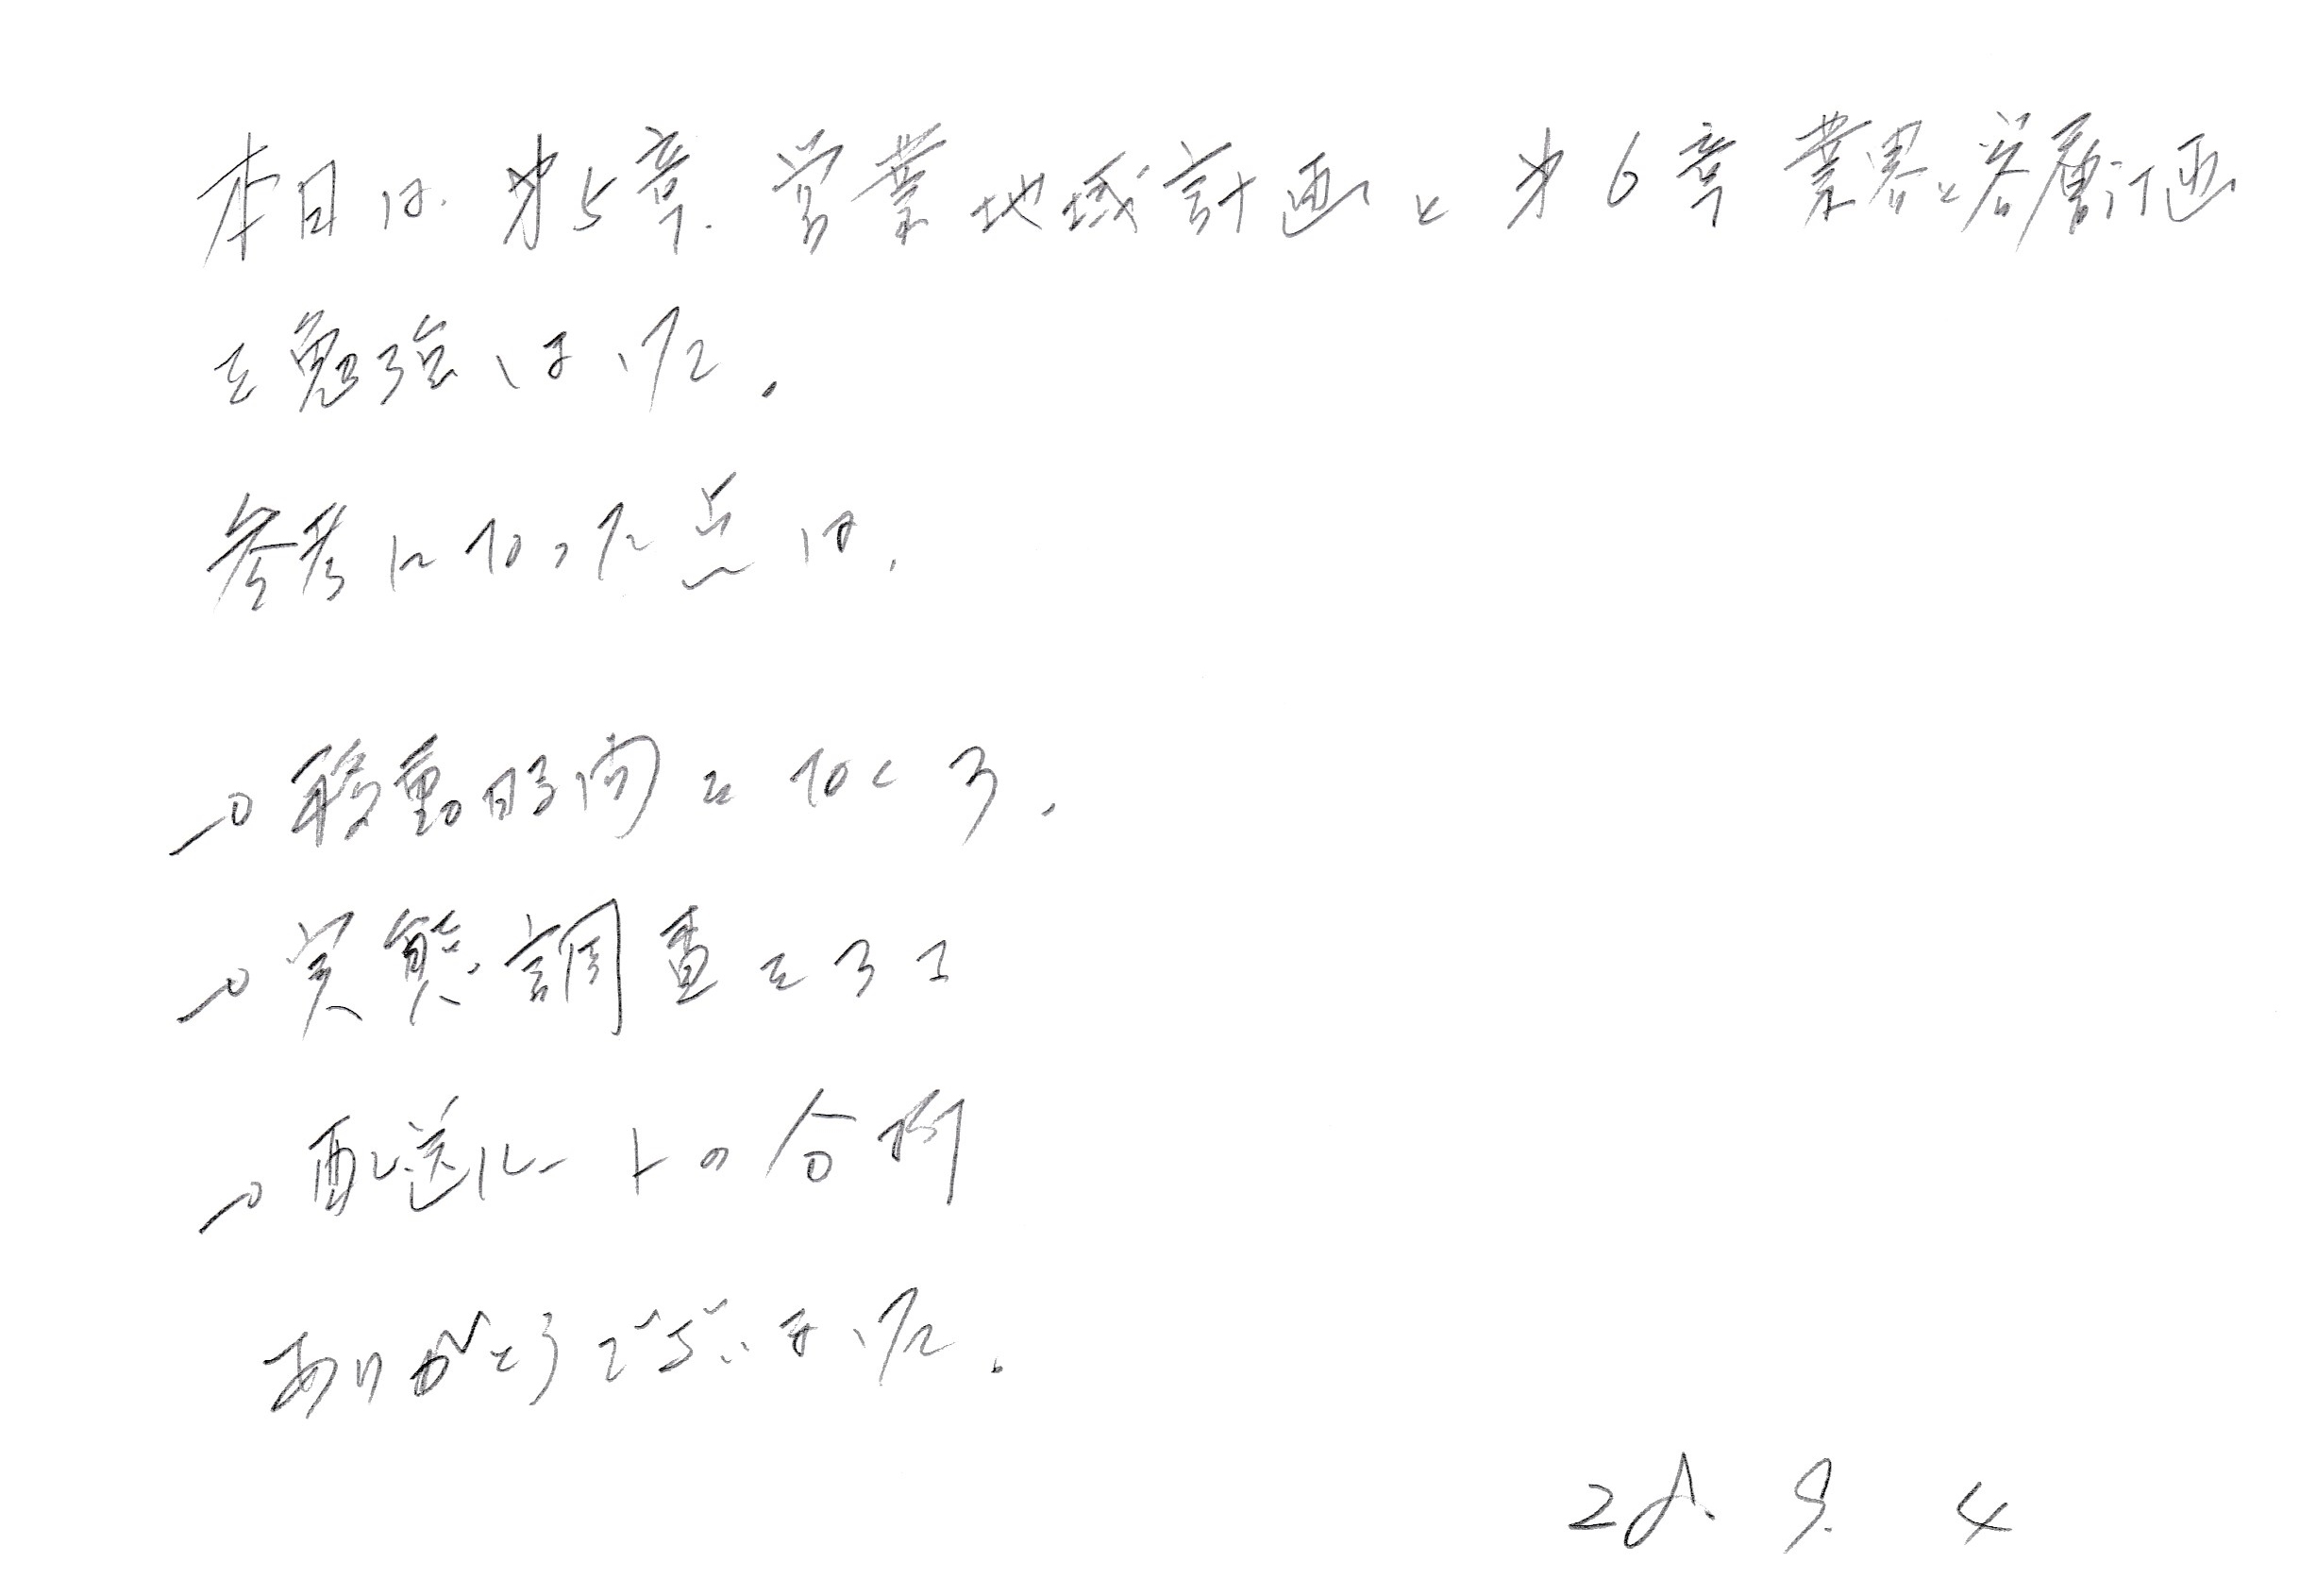 本日は、第5章、営業地域計画と第6章業界と客層計画
を勉強しました。
参考になった点は、
→0 移動時間をなくす、
→0 実態調査をする
→0 配送ルートの分析
ありがとうございました。
9. 4